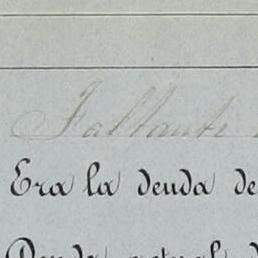 Faltante
Era la deuda de
Deuda actual d